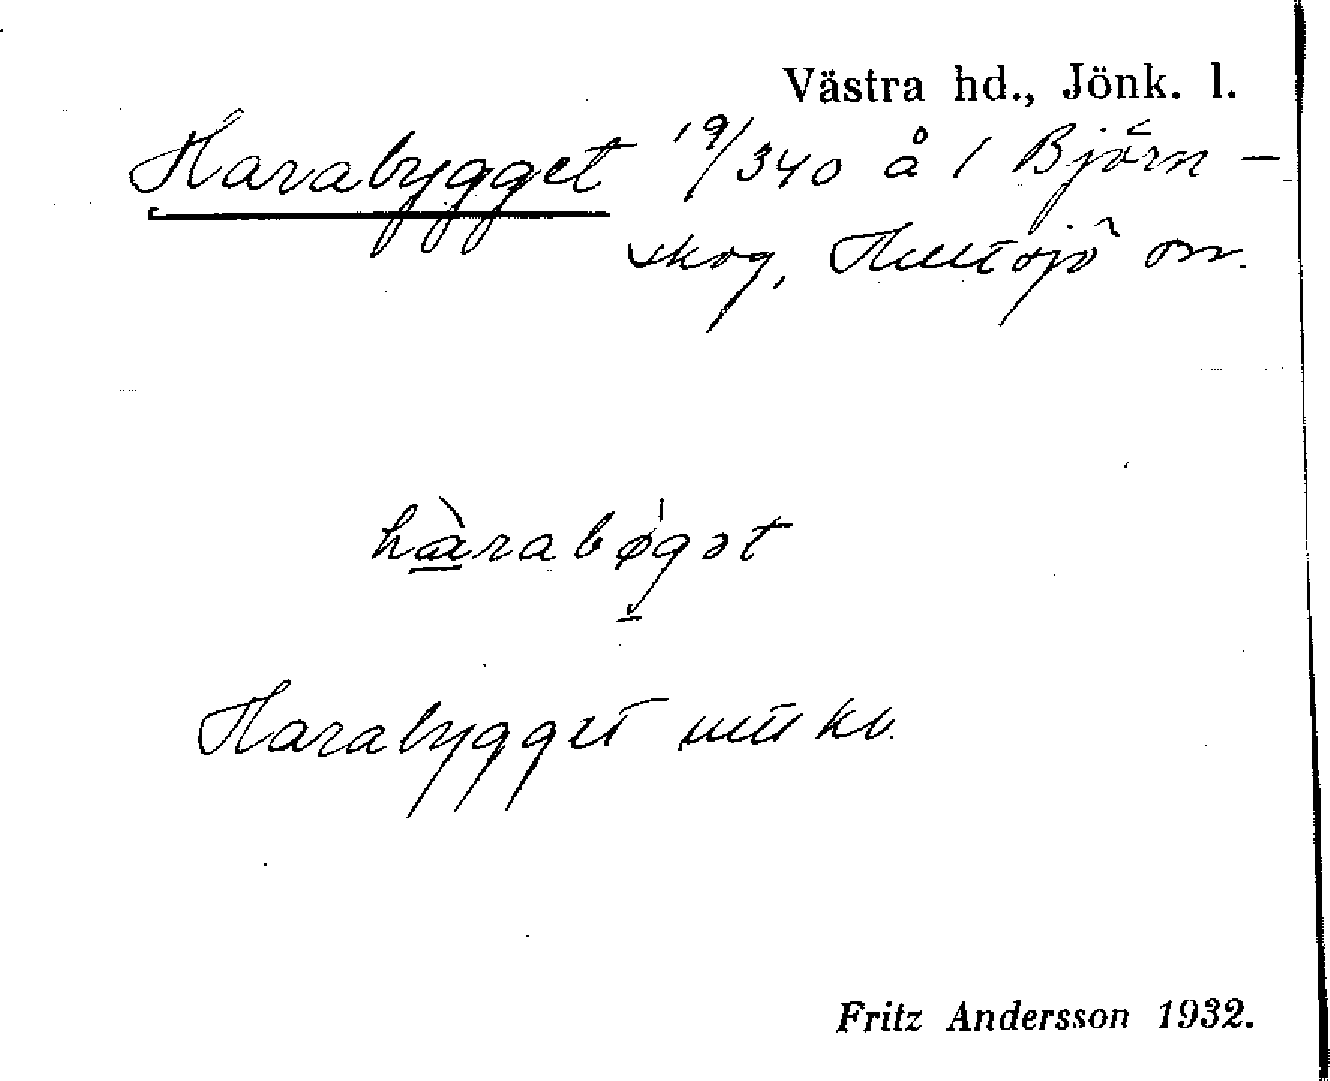 Västra hd., Jönk. l.
Harabygget 19/340 å 1 Björn-
skog, Hultsjö sn.
hàrabøgət
Harabygget uttkv.
Fritz Andersson 1932.